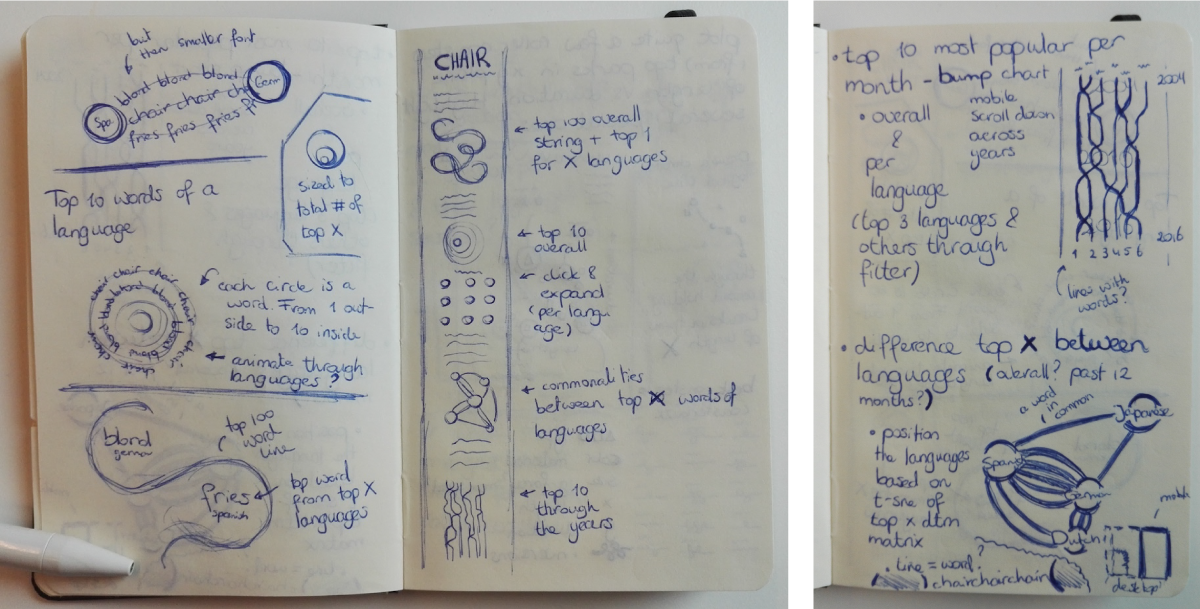 but
then smaller font
blond blond blond
Spa
Germ
chair chair
fries fries fries
sized to
total # of
top X
Top 10 words of a
language
chair chair chair chair
blond blond blond
each circle is a
word. From 1 out-
side to 10 inside
animate through
languages?
blond
german
top 100
word
line
fries
spanish
top word
from top X
languages
CHAIR
top 100 overall
string + top 1
for X languages
top 10
overall
click &
expand
(per langu
age)
commonalities
between top X words of
languages
top 10
through
the years
• top 10 most popular per
month - bump chart
• overall
&
per
language
(top 3 languages &
others through
filter)
mobile
scroll down
across
years
2004
2016
1 2 3 4 5 6
lines with
words?
• difference top X between
languages (overall? past 12
months?)
a word
in common
Japanese
• position
the languages
based on
t-sne of
top x dtm
matrix
Spanish
German
Dutch
mobile
desktop
?
• Line = word?
chairchairchain